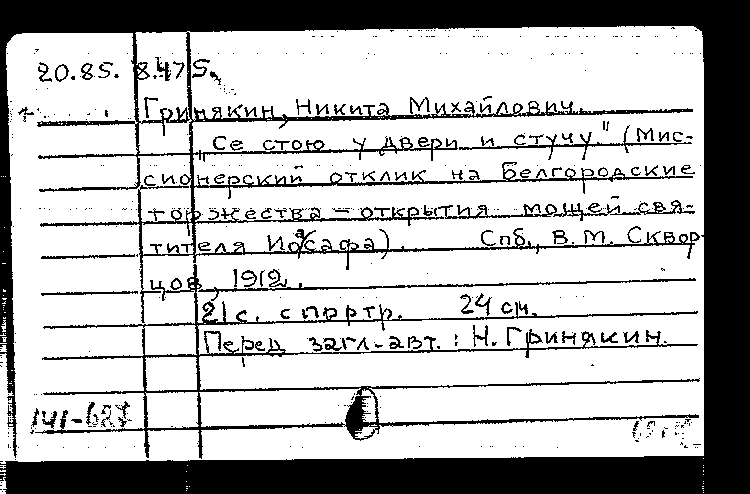 20.85. 8.475.
Гринякин, Никита Михайлович.
„Се стою у двери и стучу." (Мис-
сионерский отклик на Белгородские
торжества – открытия мощей свя-
тителя Иоасафа). Спб., В. М. Сквор-
цов, 1912.
21 с. с портр. 24 см.
Перед загл. авт.: Н. Гринякин.
141-627